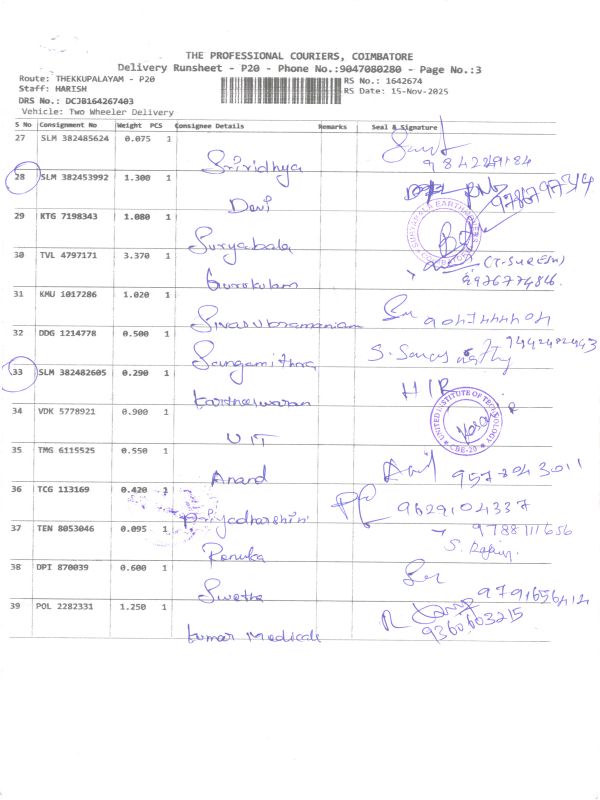 THE PROFESSIONAL COURIERS, COIMBATORE
Delivery Runsheet - P20 - Phone No.:9047080280 - Page No.:3
Route: THEKKUPALAYAM - P20
RS No.: 1642674
Staff: HARISH
RS Date: 15-Nov-2025
DRS No.: DCJB164267403
Vehicle: Two Wheeler Delivery
S No Consignment No Weight PCS Consignee Details Remarks Seal & Signature
27 SLM 382485624 0.075 1
Srividhya
28 SLM 382453992 1.300 1
Devi
29 KTG 7198343 1.080 1
Suryabala
30 TVL 4797171 3.370 1
(T.SURESH)
Gurukulam
31 KMU 1017286 1.020 1
Sivasubramanian
32 DDG 1214778 0.500 1
Sangamithra
33 SLM 382482605 0.290 1
H/R
Kartheeswaran
34 VDK 5778921 0.900 1
UNITED INSTITUTE OF TECHNOLOGY
CBE-20
UIT
35 TMG 6115525 0.550 1
9578043011
Anand
36 TCG 113169 0.420 1
9629104337
Priyadharshini
37 TEN 8053046 0.095 1
9788111656
Renuka
38 DPI 870039 0.600 1
Swetha
39 POL 2282331 1.250 1
9360603215
Kumar Medicals